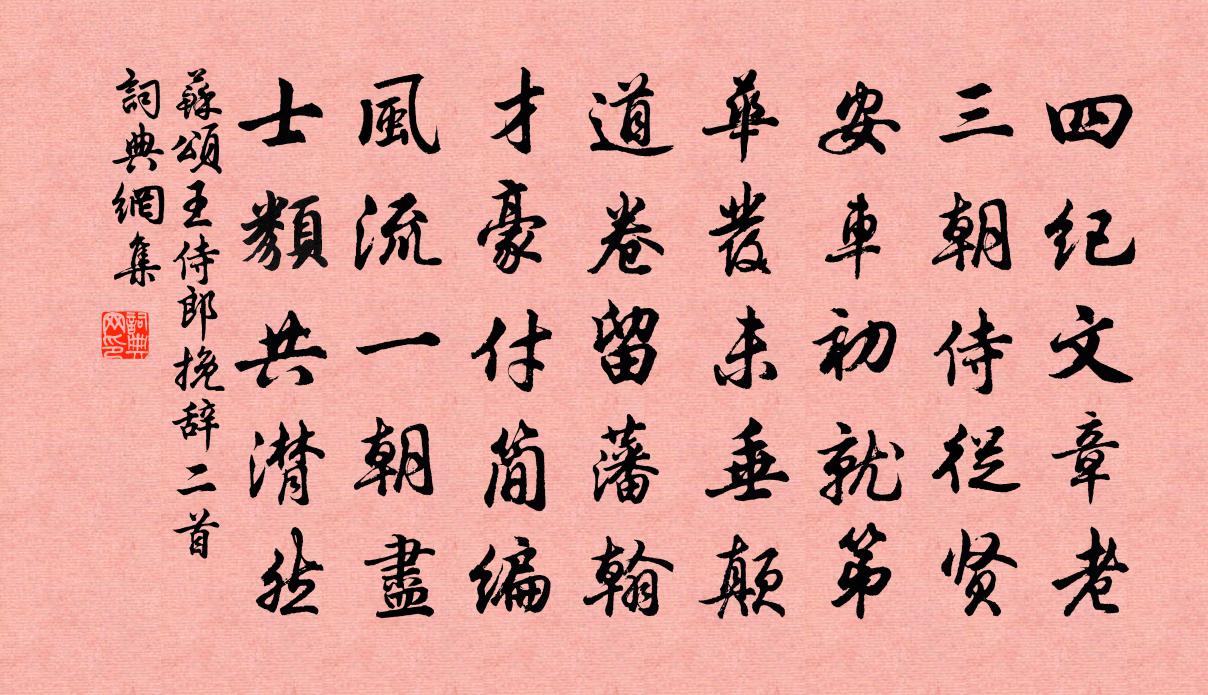 四纪文章老
三朝侍從贤
安車初就第
華發未垂顛
道卷留藩翰
才豪付简编
風流一朝盡
士類共潸然
蘇頌王侍郎挽辞二首
詞典網集
詞典网印